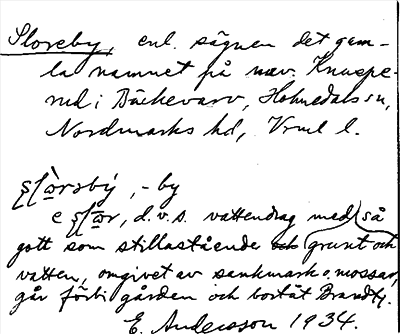 Sloreby, enl. sägnen det gam-
la namnet på nuv. Knape-
rud i Bäckevarv, Holmedals sn,
Nordmarks hd, Vrml l.
-by
d.v.s. vattendrag med så
gott som stillastående och grunt och
vatten, omgivet av sankmark o. mossar,
går förbi gården och bortåt Brandty.
E. Andersson 1934.